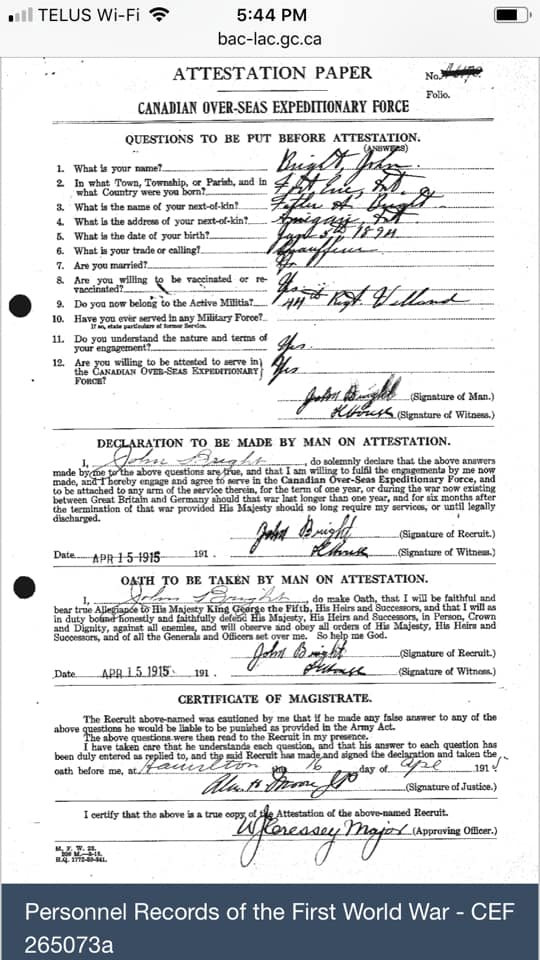 TELUS Wi-Fi 5:44 PM
bac-lac.gc.ca
ATTESTATION PAPER
No.
Folio.
CANADIAN OVER-SEAS EXPEDITIONARY FORCE
QUESTIONS TO BE PUT BEFORE ATTESTATION.
(ANSWERS)
1. What is your name? Bright John
2. In what Town, Township, or Parish, and in
what Country were you born? Ont
3. What is the name of your next-of-kin? Father Bright
4. What is the address of your next-of-kin? Ont
5. What is the date of your birth?
6. What is your trade or calling? Chauffeur
7. Are you married? No
8. Are you willing to be vaccinated or re-
vaccinated? Yes
9. Do you now belong to the Active Militia? 44th Regt. Welland
10. Have you ever served in any Military Force?
If so, state particulars of former Service.
11. Do you understand the nature and terms of
your engagement? Yes.
12. Are you willing to be attested to serve in
the CANADIAN OVER-SEAS EXPEDITIONARY Yes
FORCE?
John Bright (Signature of Man.)
(Signature of Witness.)
DECLARATION TO BE MADE BY MAN ON ATTESTATION.
I, John Bright, do solemnly declare that the above answers
made by me to the above questions are true, and that I am willing to fulfil the engagements by me now
made, and I hereby engage and agree to serve in the Canadian Over-Seas Expeditionary Force, and
to be attached to any arm of the service therein, for the term of one year, or during the war now existing
between Great Britain and Germany should that war last longer than one year, and for six months after
the termination of that war provided His Majesty should so long require my services, or until legally
discharged.
John Bright (Signature of Recruit.)
Date APR 15 1915 191 . (Signature of Witness.)
OATH TO BE TAKEN BY MAN ON ATTESTATION.
I, John Bright, do make Oath, that I will be faithful and
bear true Allegiance to His Majesty King George the Fifth, His Heirs and Successors, and that I will as
in duty bound honestly and faithfully defend His Majesty, His Heirs and Successors, in Person, Crown
and Dignity, against all enemies, and will observe and obey all orders of His Majesty, His Heirs and
Successors, and of all the Generals and Officers set over me. So help me God.
John Bright (Signature of Recruit.)
Date APR 15 1915 191 . (Signature of Witness.)
CERTIFICATE OF MAGISTRATE.
The Recruit above-named was cautioned by me that if he made any false answer to any of the
above questions he would be liable to be punished as provided in the Army Act.
The above questions were then read to the Recruit in my presence.
I have taken care that he understands each question, and that his answer to each question has
been duly entered as replied to, and the said Recruit has made and signed the declaration and taken the
oath before me, at Hamilton this 16 day of Apl 1915
(Signature of Justice.)
I certify that the above is a true copy of the Attestation of the above-named Recruit.
W J Cressey Major (Approving Officer.)
M. F. W. 23.
H.Q. 1772-39-841.
Personnel Records of the First World War - CEF
265073a